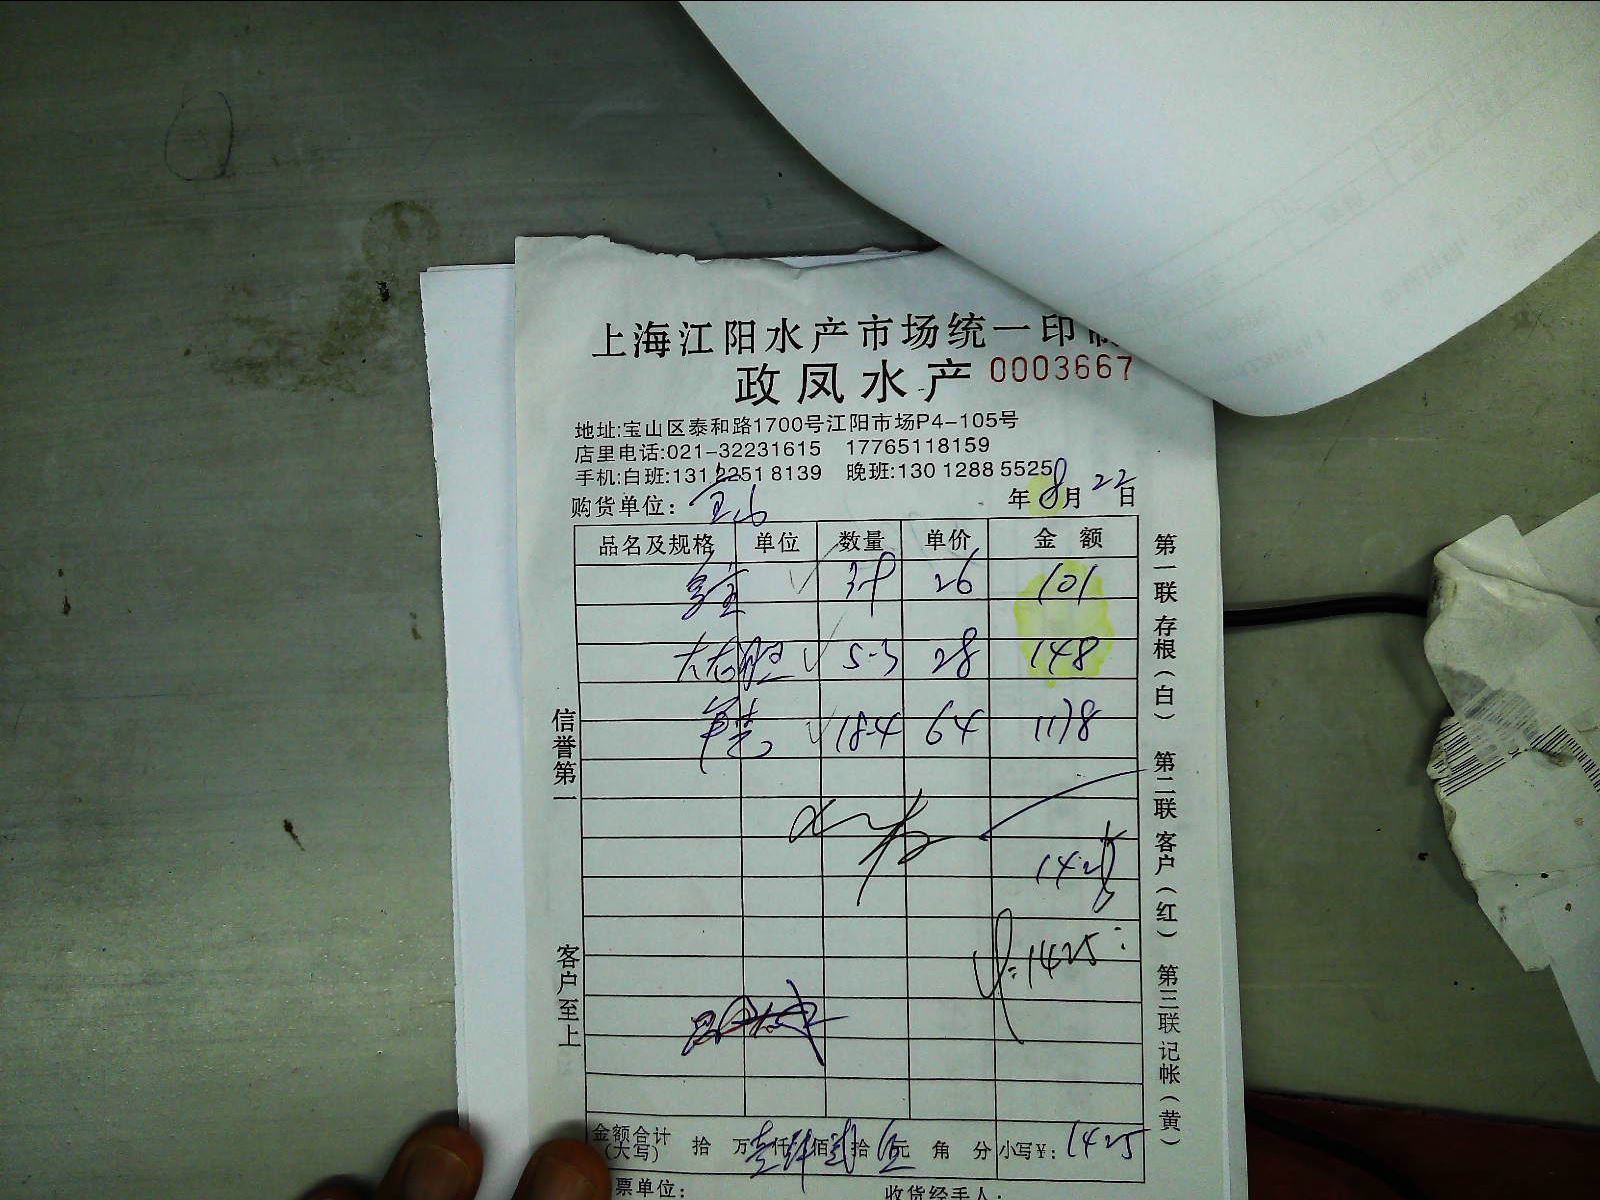 上海江阳水产市场统一印
政凤水产 0003667
地址:宝山区泰和路1700号江阳市场P4-105号
店里电话:021-32231615 17765118159
手机:白班:131 2251 8139 晚班:130 1288 5525
购货单位: 宝山 年8月22日
品名及规格 单位 数量 单价 金额
多宝 3-9 26 101
5-3 28 148
18-4 64 1178
1425
1425
金额合计(大写) 拾 万壹仟肆佰贰拾伍元 角 分 小写¥: 1425
票单位: 收货经手人:
信誉第一
客户至上
第一联存根(白) 第二联客户(红) 第三联记帐(黄)